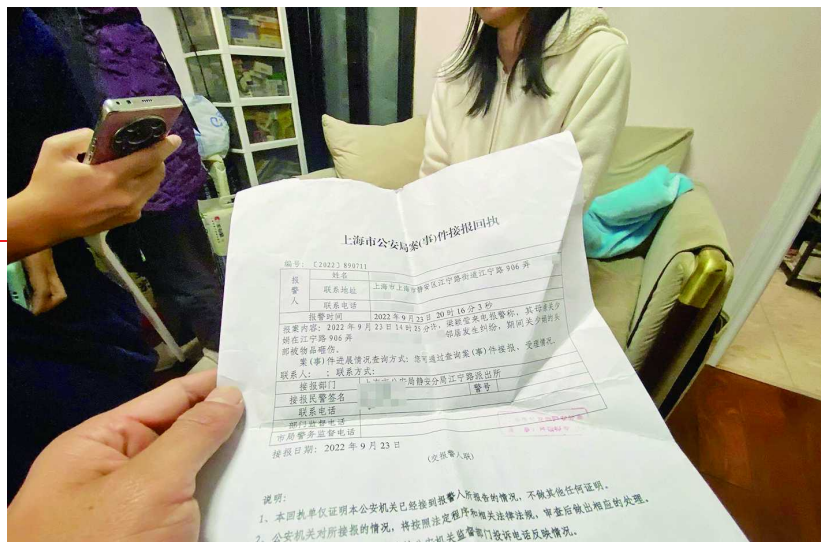 上海市公安局案(事)件接报回执
编号:〔2022〕890711
报警人
姓名
联系地址 上海市上海市静安区江宁路街道江宁路 906 弄
联系电话
报警时间 2022 年 9 月 23 日 20 时 16 分 3 秒
报案内容:2022 年 9 月 23 日 14 时 25 分许,梁
来电报警称,其母亲关少
娟在江宁路 906 弄
邻居发生纠纷,期间关少娟的
部被物品砸伤。
案(事)件进展情况查询方式:您可通过查询案(事)件接报、受理情况。
联系人: ;联系方式:
接报部门 上海市公安局静安分局江宁路派出所
接报民警签名 警号
联系电话
部门监督电话
市局警务监督电话
接报日期:2022 年 9 月 23 日
(交报警人联)
说明:
1、本回执单仅证明本公安机关已经接到报警人所报告的情况,不做其他任何证明。
2、公安机关对所接报的情况,将按照法定程序和相关法律法规,审查后做出相应的处理。
公安机关监督部门投诉电话反映情况。